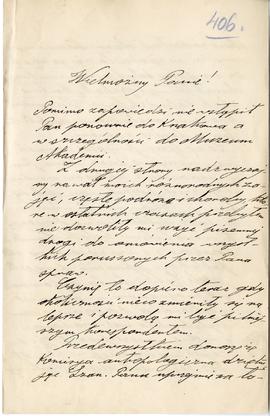 406.
Wielmożny Panie!
Pomimo zapowiedzi nie wstąpił
Pan ponownie do Krakowa a
w szczególności do Muzeum
Akademii.
Z drugiej strony nadzwyczaj-
ny nawał moich rozmaitych za-
jęć, częste podróże i choroby, któ-
re w ostatnich czasach przebyłem
nie dozwoliły mi użyć pisemnej
drogi do omówienia wszyst-
kich poruszonych przez Pana
spraw.
Czynię to dopiero teraz gdy
okoliczności nieco zmieniły się na
lepsze i pozwolą mi być pilniej-
szym korespondentem.
Przedewszystkiem donoszę iż
Komisya antropologiczna dzięku-
je Szan. Panu uprzejmie za ła-